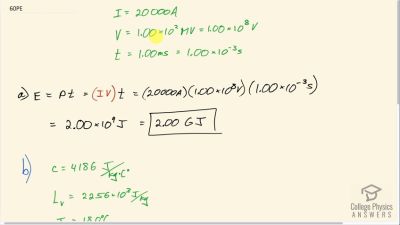 60PE
I = 20000A
V = 1.00×10² MV = 1.00×10⁸ V
t = 1.00ms = 1.00×10⁻³s
a) E = Pt = (IV)t = (20000A)(1.00×10⁸V)(1.00×10⁻³s)
= 2.00×10⁹J = 2.00 GJ
b)
c = 4186 J/kg·C°
Lᵥ = 2256×10³ J/kg
College Physics
ANSWERS